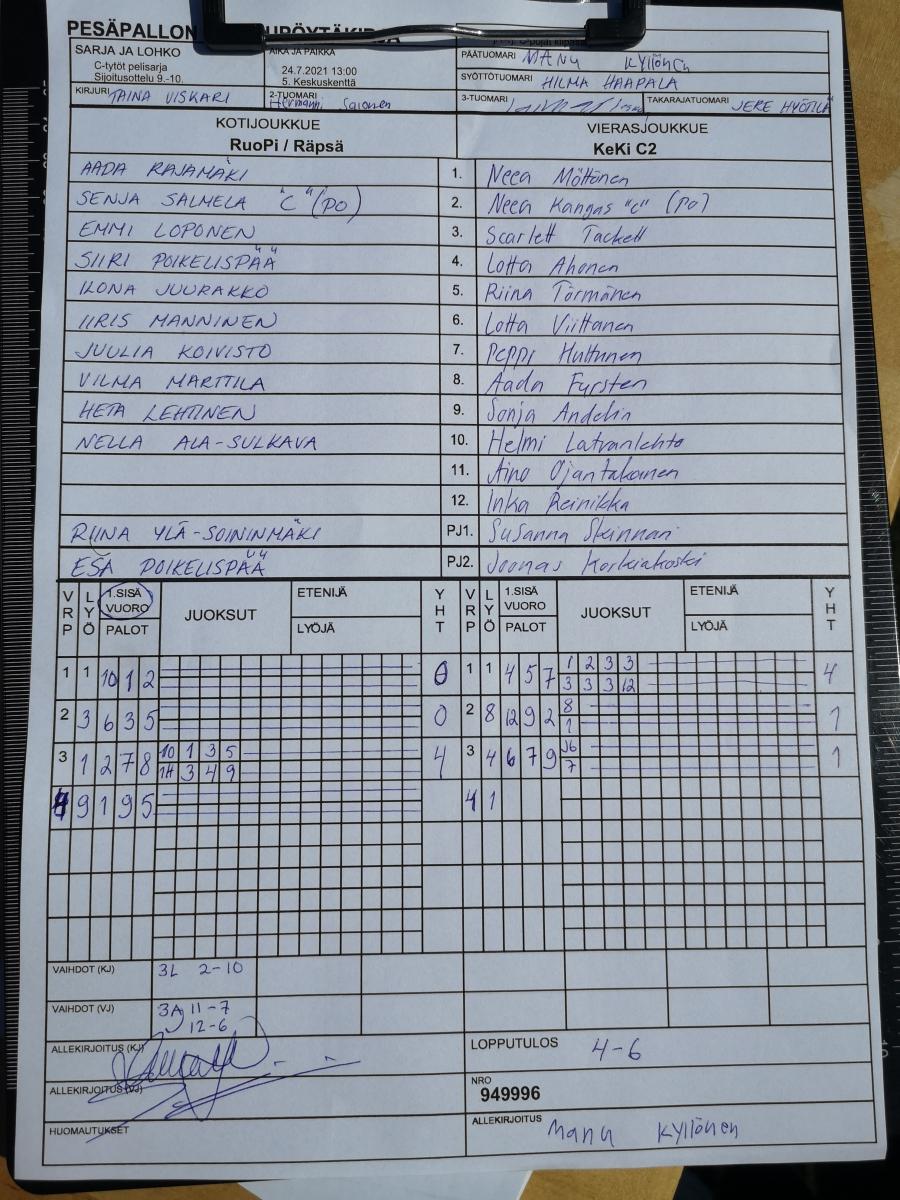 PESÄPALLON
SARJA JA LOHKO
C-tytöt pelisarja
Sijoitusottelu 9.-10.
AIKA JA PAIKKA
24.7.2021 13:00
5. Keskuskenttä
PÄÄTUOMARI MANU KYLLÖNEN
SYÖTTÖTUOMARI HILMA HAAPALA
KIRJURI TAINA VISKARI
2-TUOMARI Salonen
3-TUOMARI
TAKARAJATUOMARI JERE HYÖTYLÄ
KOTIJOUKKUE
RuoPi / Räpsä
VIERASJOUKKUE
KeKi C2
AADA RAJAMÄKI 1. Neea Möttönen
SENJA SALMELA "C" (PO) 2. Neea Kangas "C" (PO)
EMMI LOPONEN 3. Scarlett Tackett
SIIRI POIKELISPÄÄ 4. Lotta Ahonen
ILONA JUURAKKO 5. Riina Törmänen
IIRIS MANNINEN 6. Lotta Viittanen
JUULIA KOIVISTO 7. Peppi Huttunen
VILMA MARTTILA 8. Aada Fursten
HETA LEHTINEN 9. Sonja Andelin
NELLA ALA-SULKAVA 10. Helmi Latvanlehto
11. Aino Ojantakanen
12. Inka Reinikka
RIINA YLÄ-SOININMÄKI PJ1. Susanna Skinnari
ESA POIKELISPÄÄ PJ2. Joonas Korkiakoski
VRP LYÖ 1.SISÄ VUORO PALOT JUOKSUT ETENIJÄ LYÖJÄ YHT VRP LYÖ 1.SISÄ VUORO PALOT JUOKSUT ETENIJÄ LYÖJÄ YHT
1 1 10 1 2 0 1 1 4 5 7 1 2 3 3 4
3 3 3 12
2 3 6 3 5 0 2 8 12 9 2 8 1
1
3 1 2 7 8 10 1 3 5 4 3 4 6 7 9 J6 1
1H 3 4 9 7
4 9 1 9 5 4 1
VAIHDOT (KJ) 3L 2-10
VAIHDOT (VJ) 3A 11-7
12-6
ALLEKIRJOITUS (KJ)
LOPPUTULOS 4-6
ALLEKIRJOITUS (VJ)
NRO
949996
HUOMAUTUKSET
ALLEKIRJOITUS Manu Kyllönen